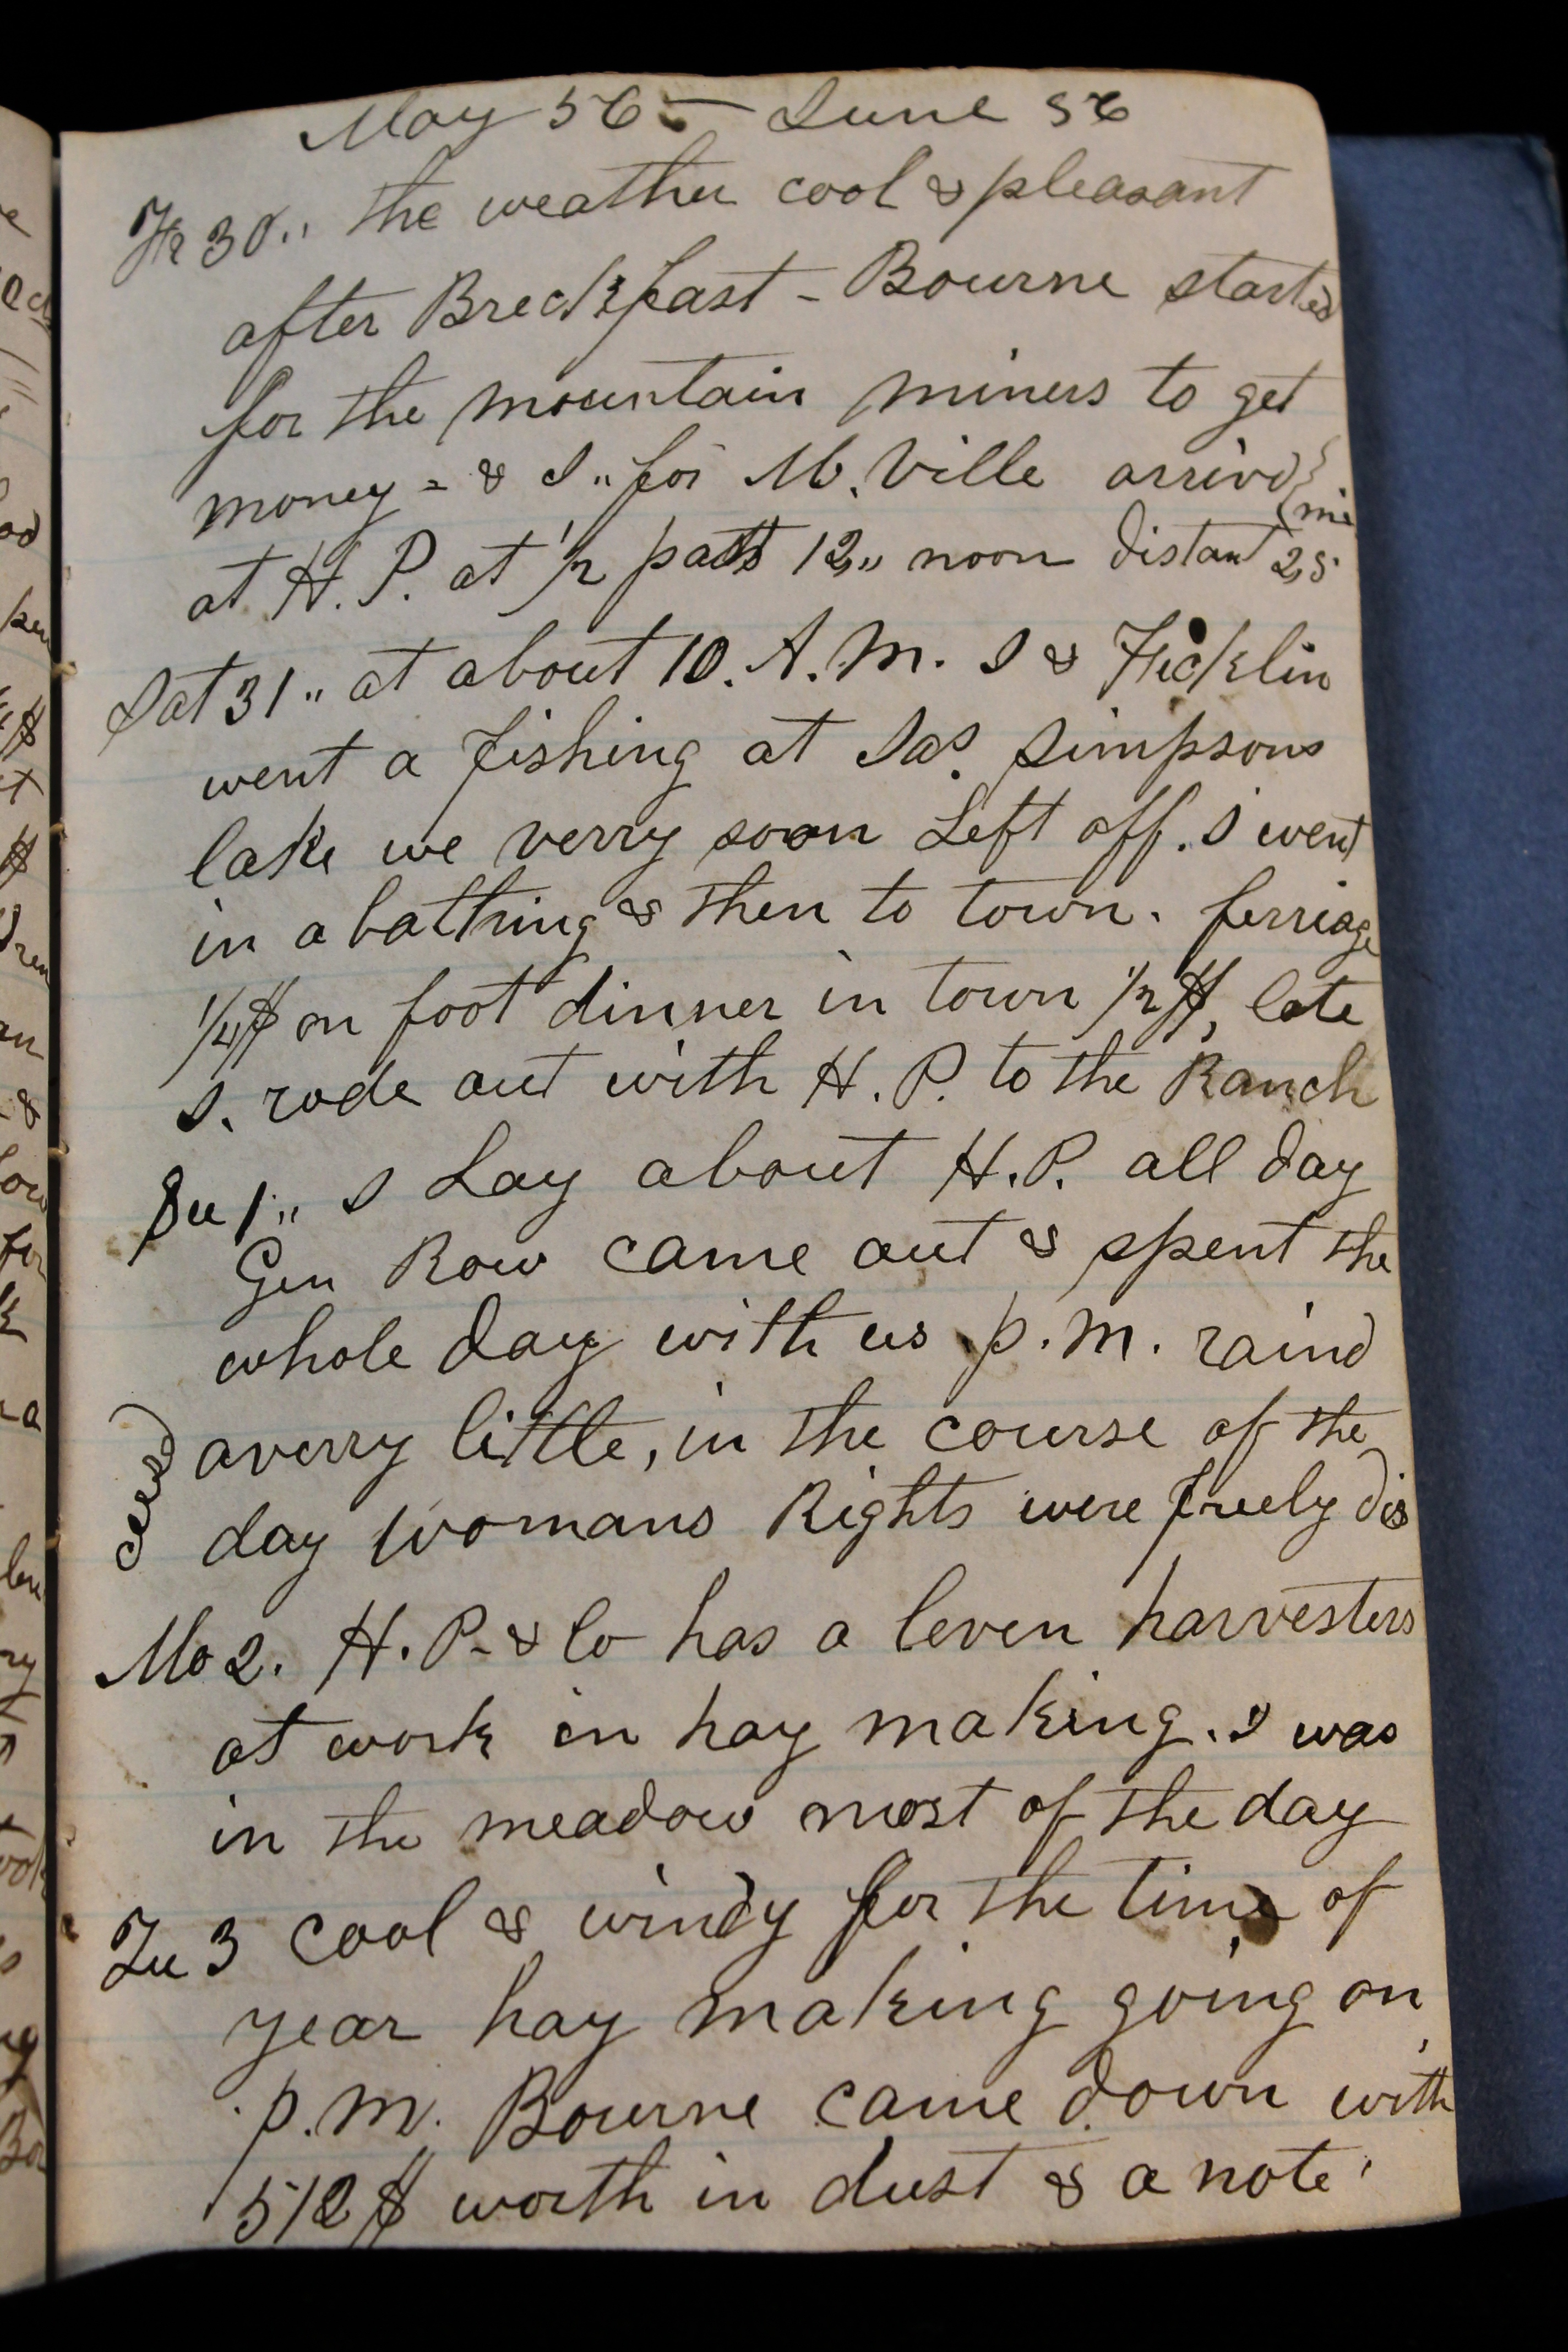 May 56 — June 56
Fr 30.. the weather cool & pleasant
after Breckfast - Bourne started
for the mountain miners to get
money = & I.. for M. Ville arrivd
mi
at H. P. at 1/2 past 12,, noon distant 25
Sat 31.. at about 10. A. M. I & Ficklin
went a fishing at Jas. Simpsons
lake we verry soon Left off. I went
in a bathing & then to town. ferriage
1/4$ on foot dinner in town 1/2 $, late
I. rode out with H. P. to the Ranch
Su 1.. I Lay about H. P. all day
Gen Row came out & spent the
whole day with us p. m. raind
a verry little, in the course of the
day Womans Rights were freely dis
cused
Mo 2. H. P. & Co has a leven harvesters
at work in hay making. I was
in the meadow most of the day
Tu 3 cool & windy for the time of
year hay making going on,
p. m. Bourne came down with
512 $ worth in dust & a note